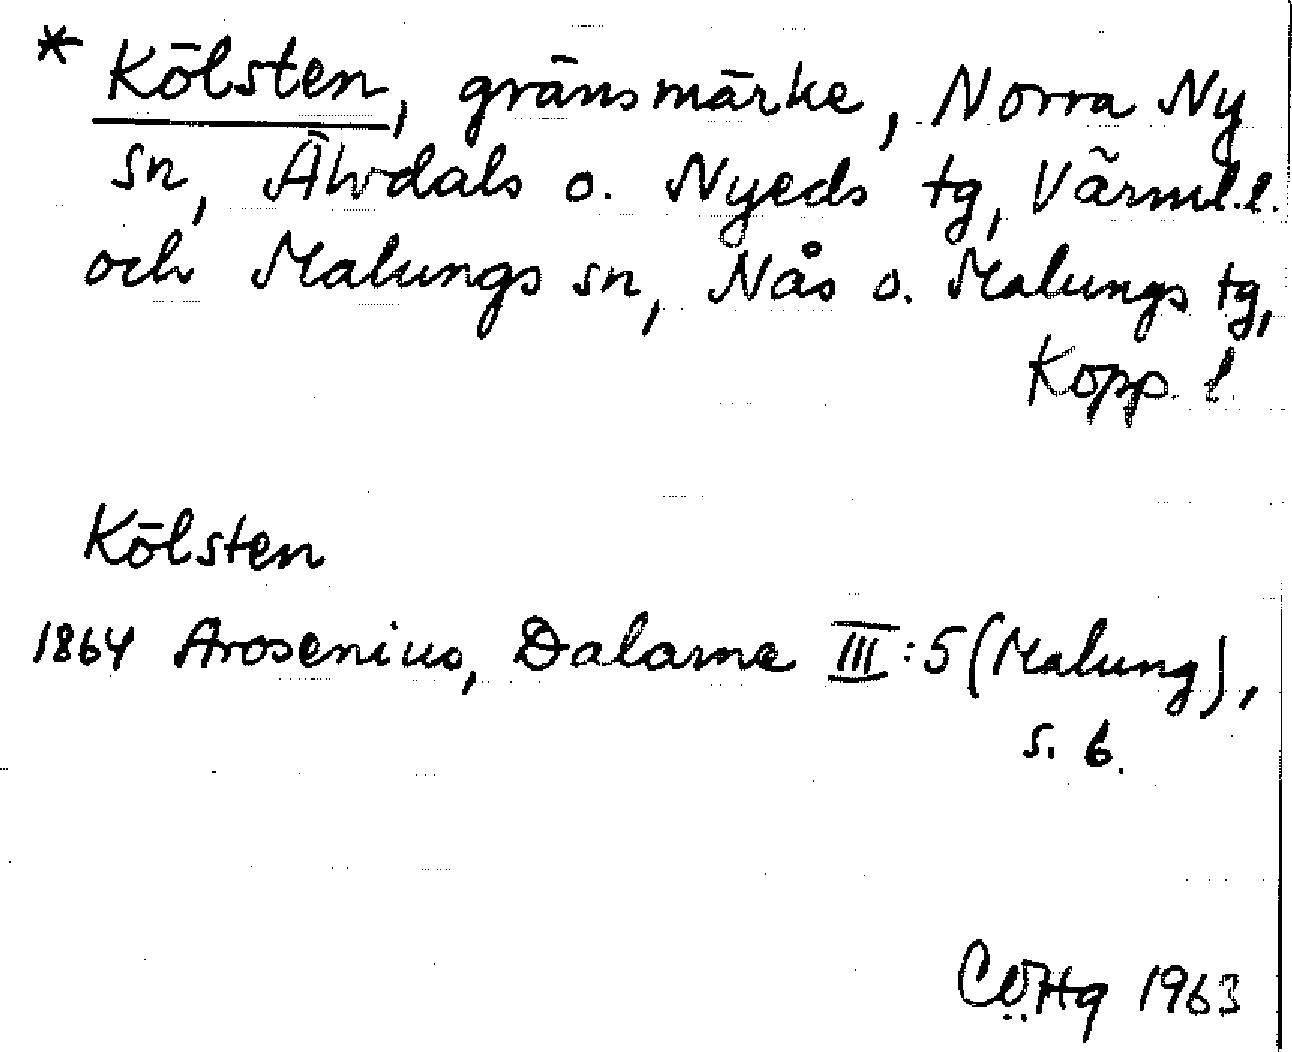 * Kölsten, gränsmärke, Norra Ny
sn, Älvdals o. Nyeds tg, Värml.l.
och Malungs sn, Nås o. Malungs tg,
Kopp. l.
Kölsten
1864 Arosenius, Dalarne III:5 (Malung),
s. 6.
1963